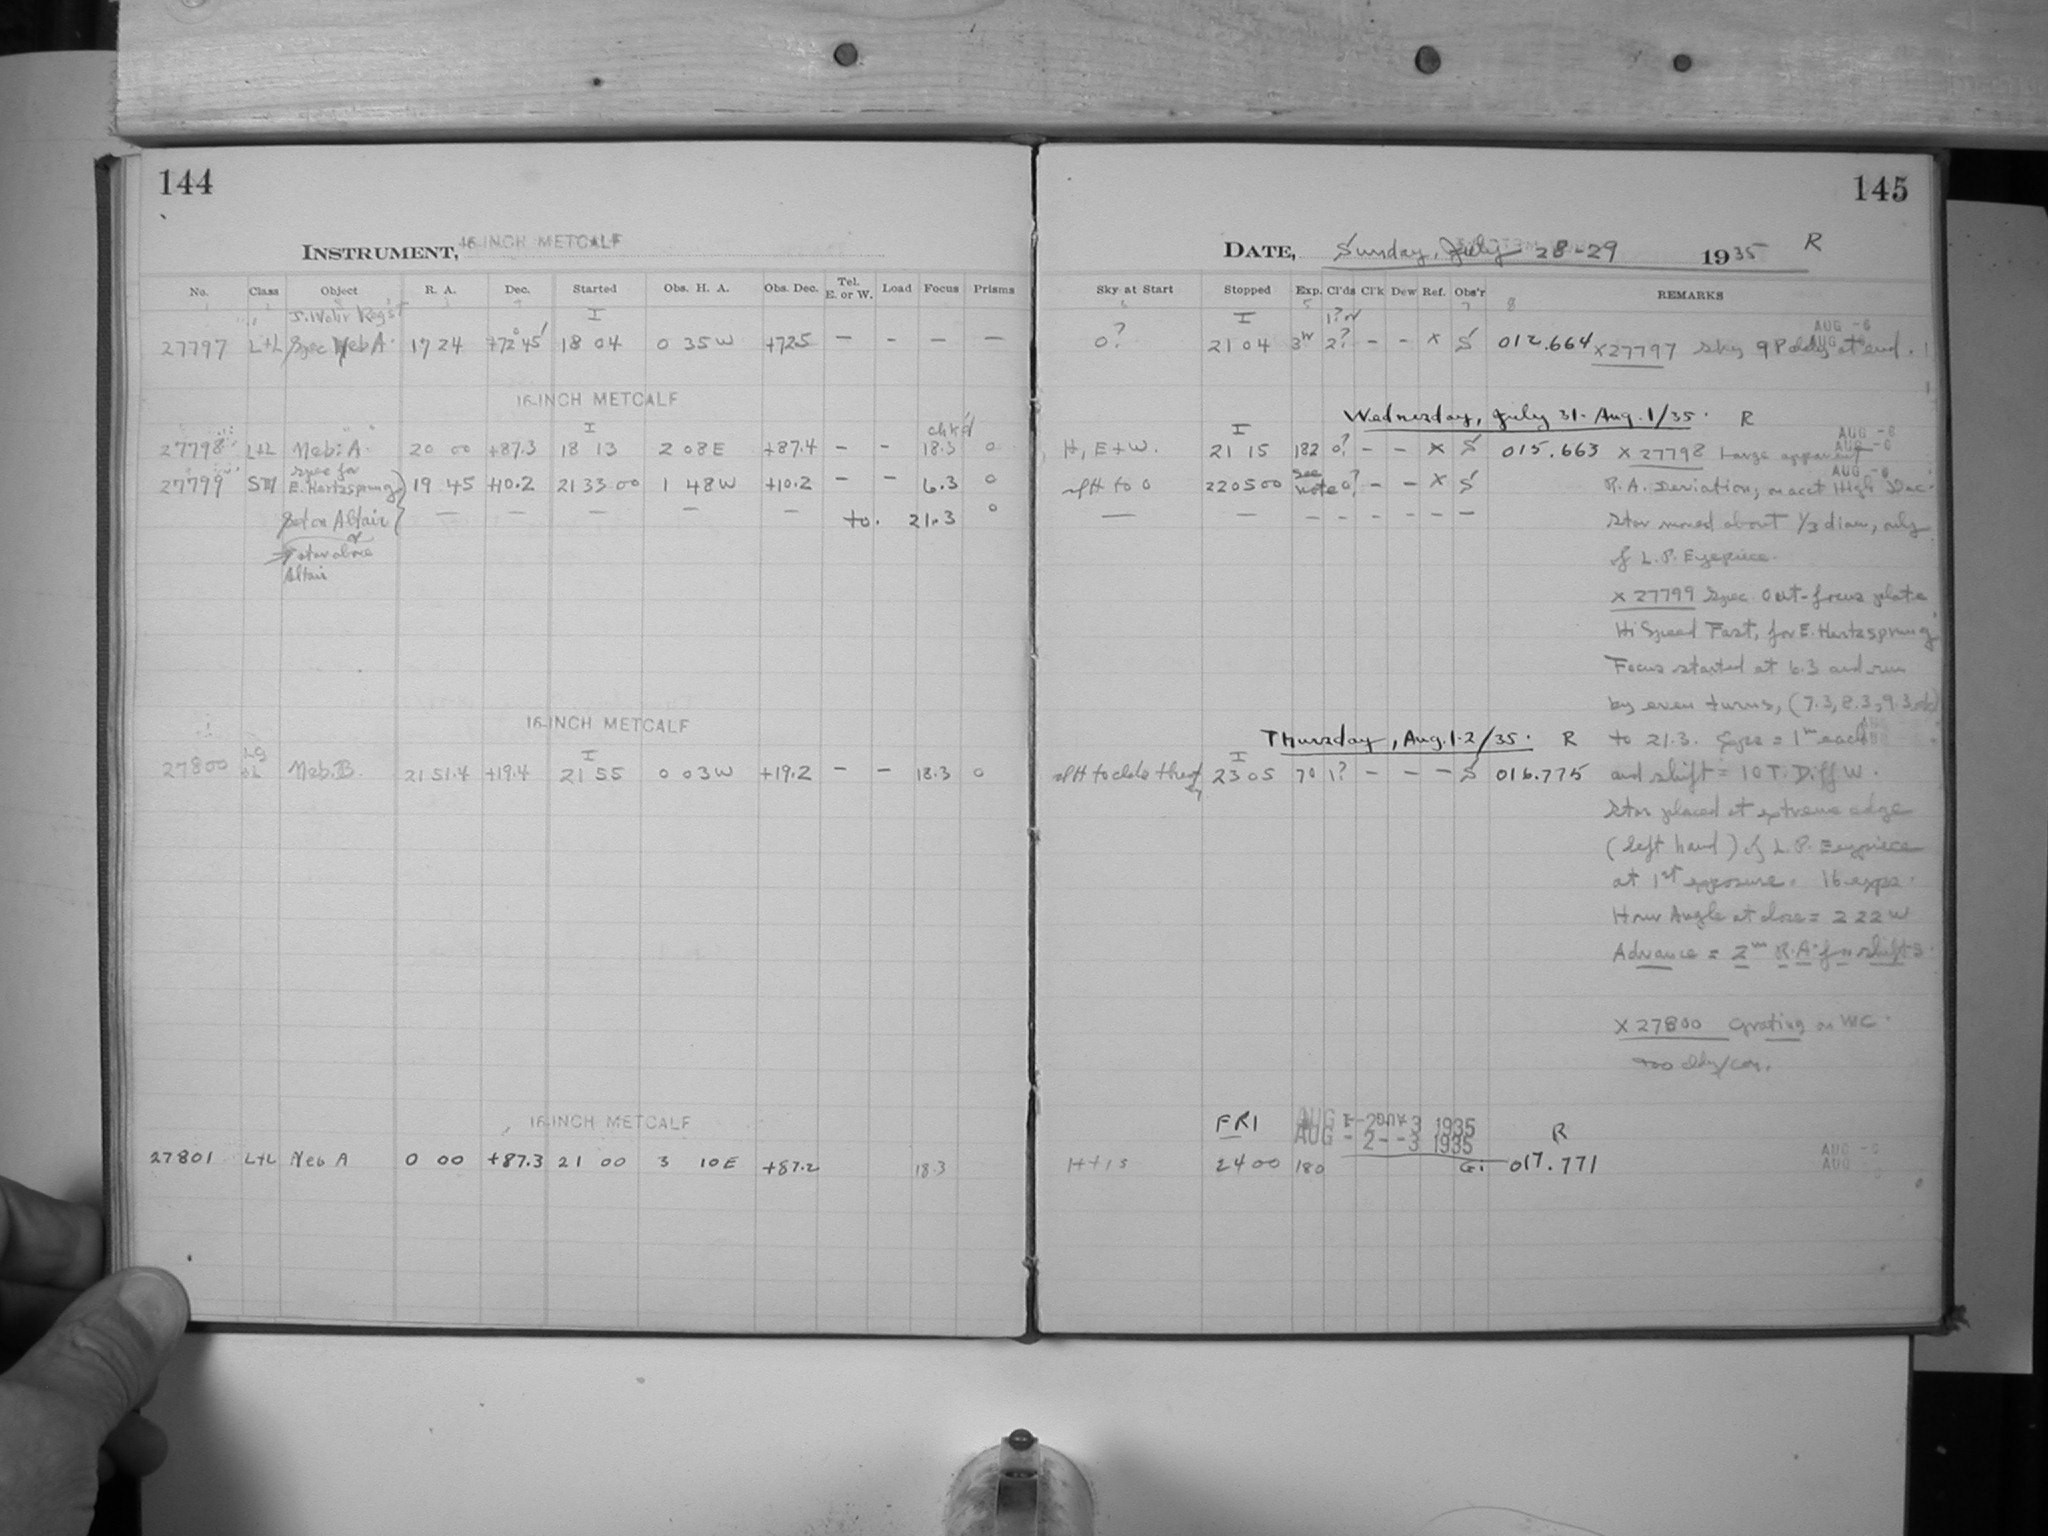 144
INSTRUMENT, 16-INCH METCALF
No. Class Object R. A. Dec. Started Obs. H. A. Obs. Dec. Tel. E. or W. Load Focus Prisms
27797 L+L Spec Neb A. 17 24 +72 45' I 18 04 0 35 W +72.5 — - — —
16-INCH METCALF
27798 L+L Neb. A. 20 00 +87.3 I 18 13 2 08 E +87.4 — - chk'd 18.3 0
27799 Spec for E. Hertzsprung 19 45 +10.2 21 33 00 1 48 W +10.2 — — 6.3 0
Set on Altair — — — — — to. 21.3 0
or
star above
Altair
16-INCH METCALF
27800 Neb. B. 21 51.4 +19.4 I 21 55 0 03 W +19.2 — — 18.3 0
16-INCH METCALF
27801 L+L Neb A 0 00 +87.3 21 00 3 10 E +87.2 18.3
145
DATE, Sunday, July 28-29 1935 R
Sky at Start Stopped Exp. Cl'ds Cl'k Dew Ref. Obs'r REMARKS
0? I 21 04 3 2? - - x S 012.664 X27797 Sky at end.
AUG -6
Wednesday, July 31- Aug. 1/35. R
H, E+W. I 21 15 182 0? - - x S 015.663 X 27798 Large apparent
AUG -6
H to 0 22 05 00 See note 0? - - x S R.A. Deviation, on acct High Dec.
— — - - - - - — Star moved about 1/3 diam, only
of L.P. Eyepiece.
X 27799 Spec. Out-focus plate
Hi Speed Fast, for E. Hertzsprung
Focus started at 6.3 and run
by even turns, (7.3, 8.3, 9.3, etc)
Thursday, Aug. 1-2/35. R to 21.3. Exps = 1m each
I 23 05 70 1? - - — S 016.775 and shift = 10 T. Diff W.
Star placed at extreme edge
(left hand) of L.P. Eyepiece
at 1st exposure. 16 exps.
Hour Angle at close = 2 22 W
Advance = 2m R.A. for shifts.
X 27800 Grating on
FRI AUG -2--3 1935 R
24 00 180 G. 017.771
AUG -6